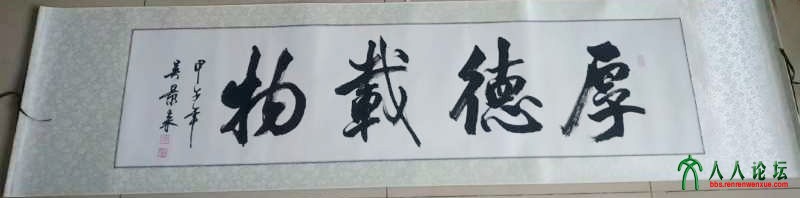 厚德載物
甲午年
吴景来
人人论坛
bbs.renrenwenxue.com